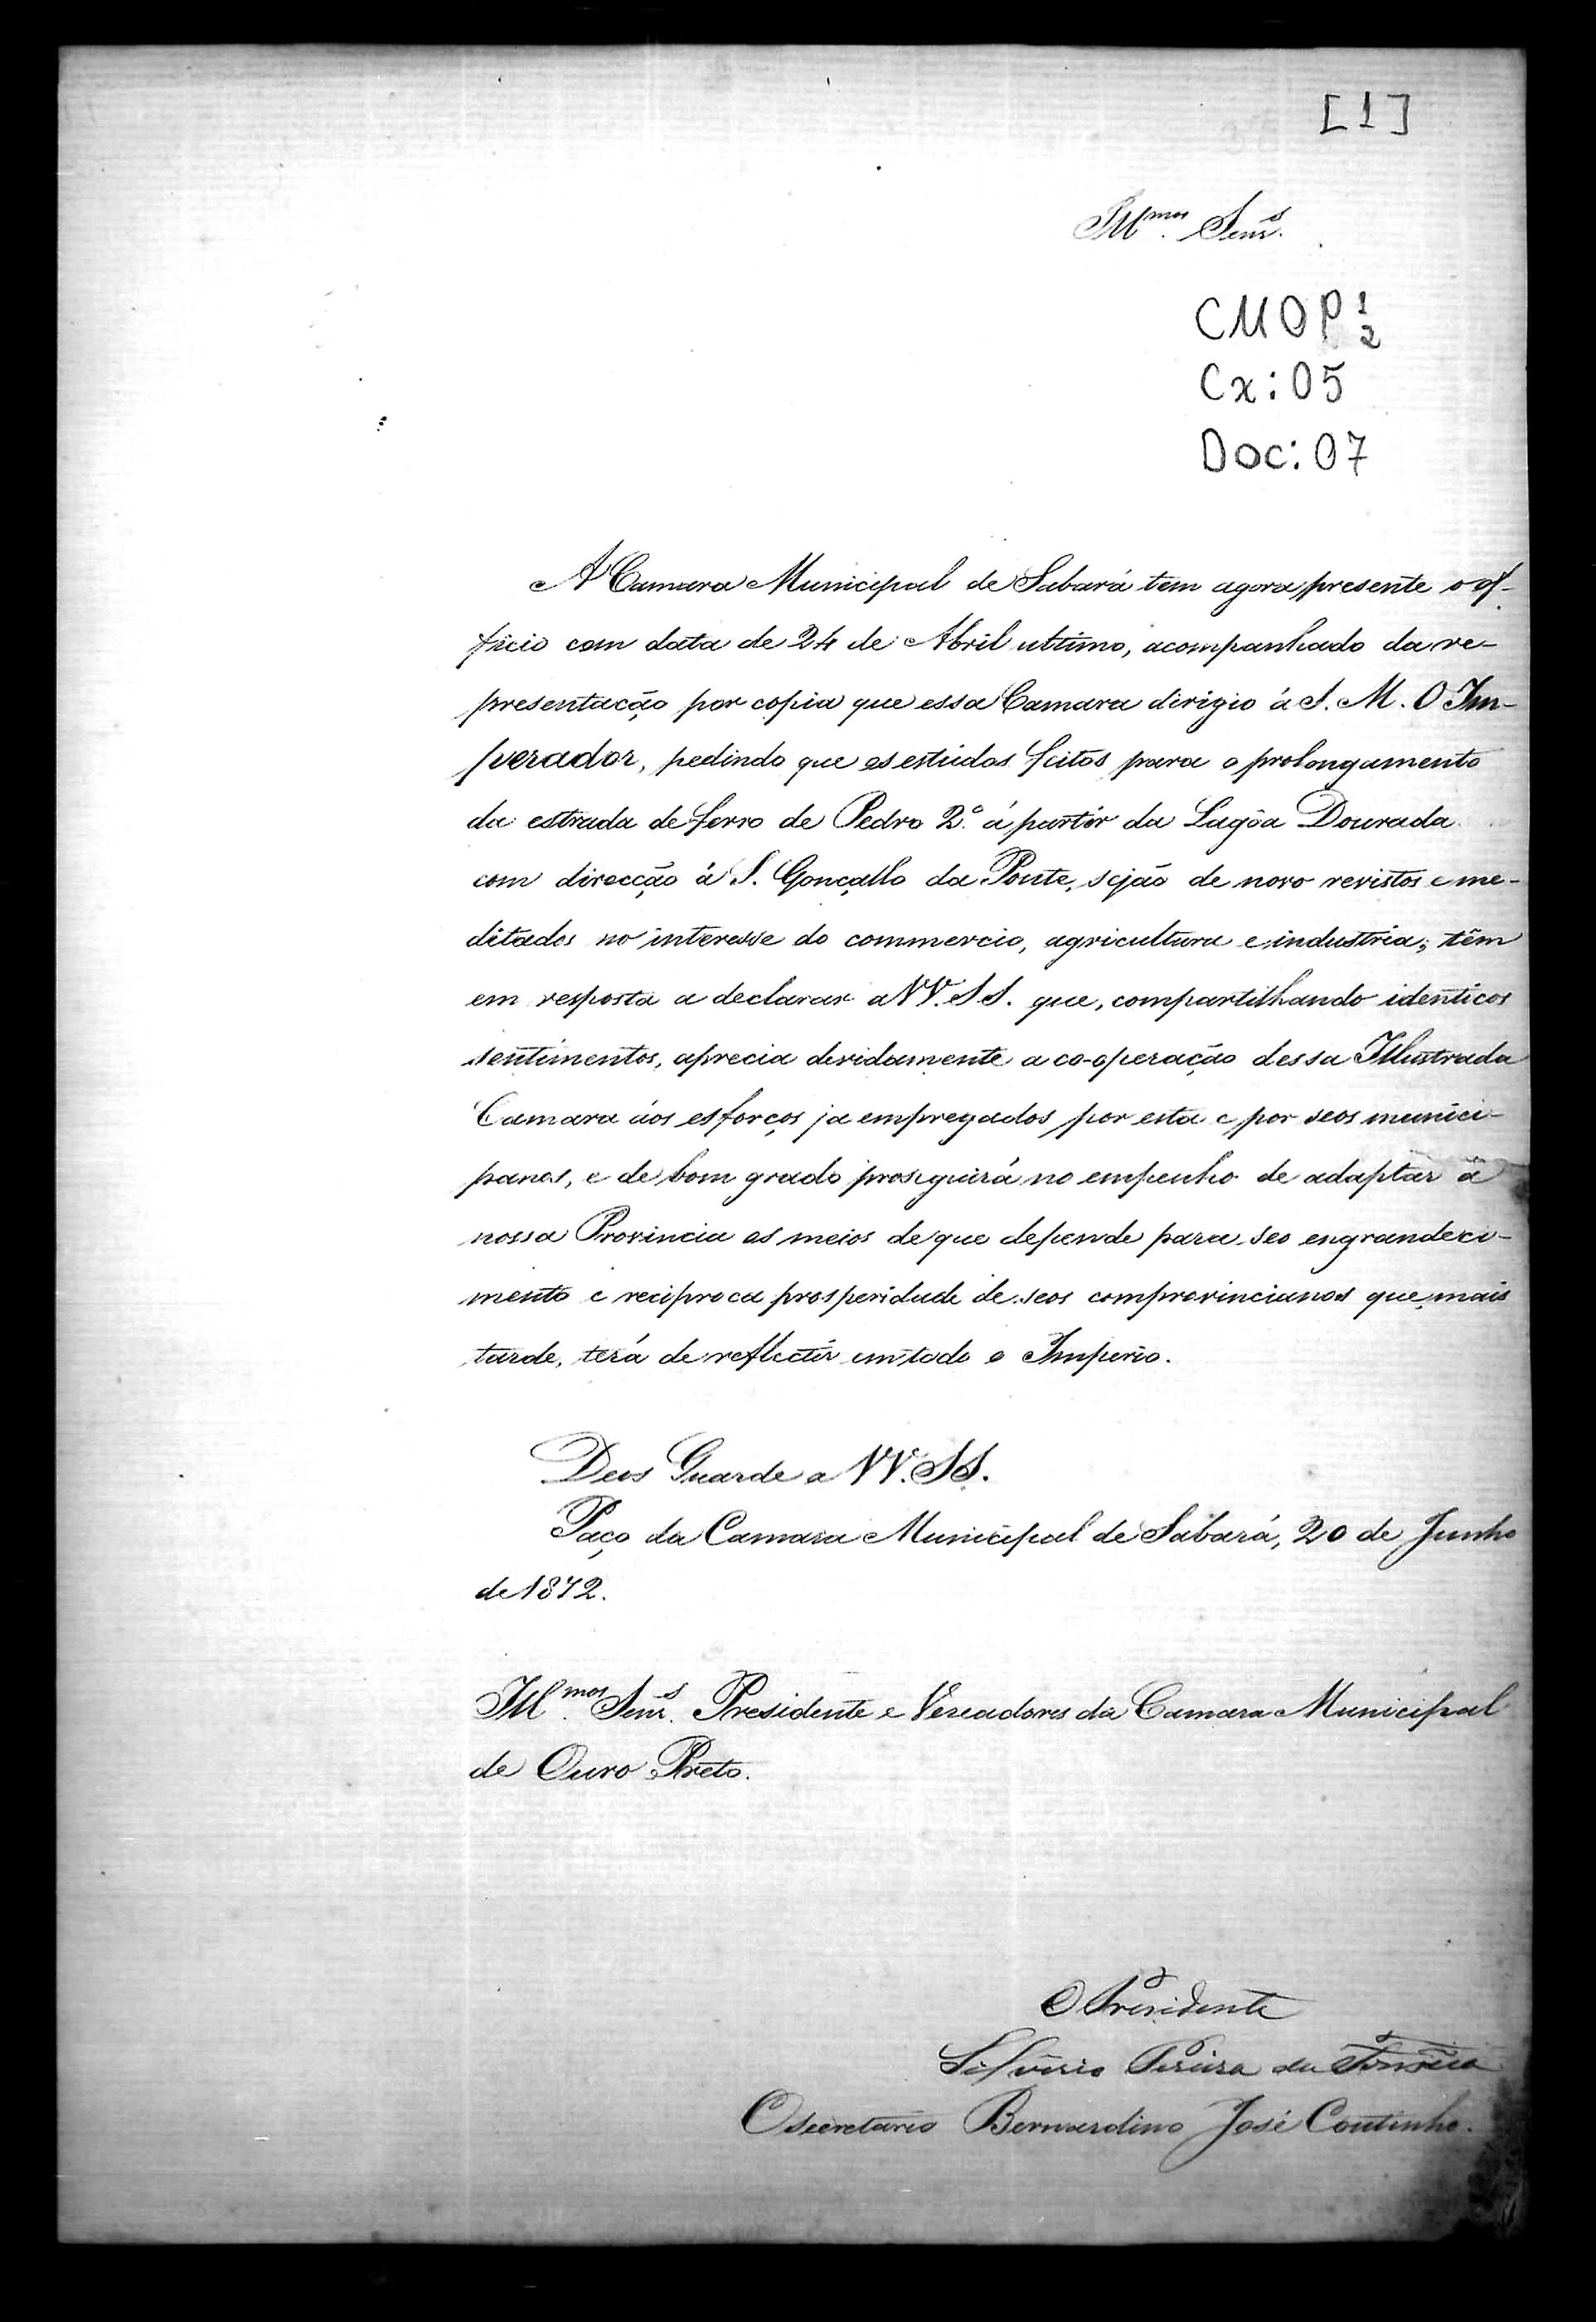 [1]
Illmos. Senrs.
CMOP 1/2
Cx: 05
Doc: 07
A Camara Municipal de Sabará tem agora presente o of-
ficio com data de 24 de Abril ultimo, acompanhado da re-
presentação por copia que essa Camara dirigio á S. M. O Im-
perador, pedindo que os estudos feitos para o prolongamento
da estrada de ferro de Pedro 2.º á partir da Lagôa Dourada
com direcção á S. Gonçallo da Ponte, sejão de novo revistos e me-
ditados no interesse do commercio, agricultura e industria; têm
em resposta a declarar a VV. SS. que, compartilhando identicos
sentimentos, aprecia devidamente a co-operação dessa Illustrada
Camara áos esforços ja empregados por esta e por seos munici-
panos, e de bom grado proseguirá no empenho de adaptar á
nossa Provincia os meios de que depende para seo engrandeci-
mento e reciproca prosperidade de seos comprovincianos que mais
tarde, terá de reflectir em todo o Imperio.
Deos Guarde a VV. SS.
Paço da Camara Municipal de Sabará, 20 de Junho
de 1872.
Illmos. Senrs. Presidente e Vereadores da Camara Municipal
de Ouro Preto.
O Presidente
Silverio Pereira da Fonseca
O secretario Bernardino José Coutinho.